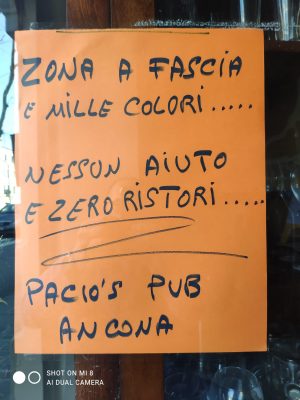 ZONA A FASCIA
E MILLE COLORI.....
NESSUN AIUTO
E ZERO RISTORI.....
PACIO'S PUB
ANCONA
SHOT ON MI 8
AI DUAL CAMERA